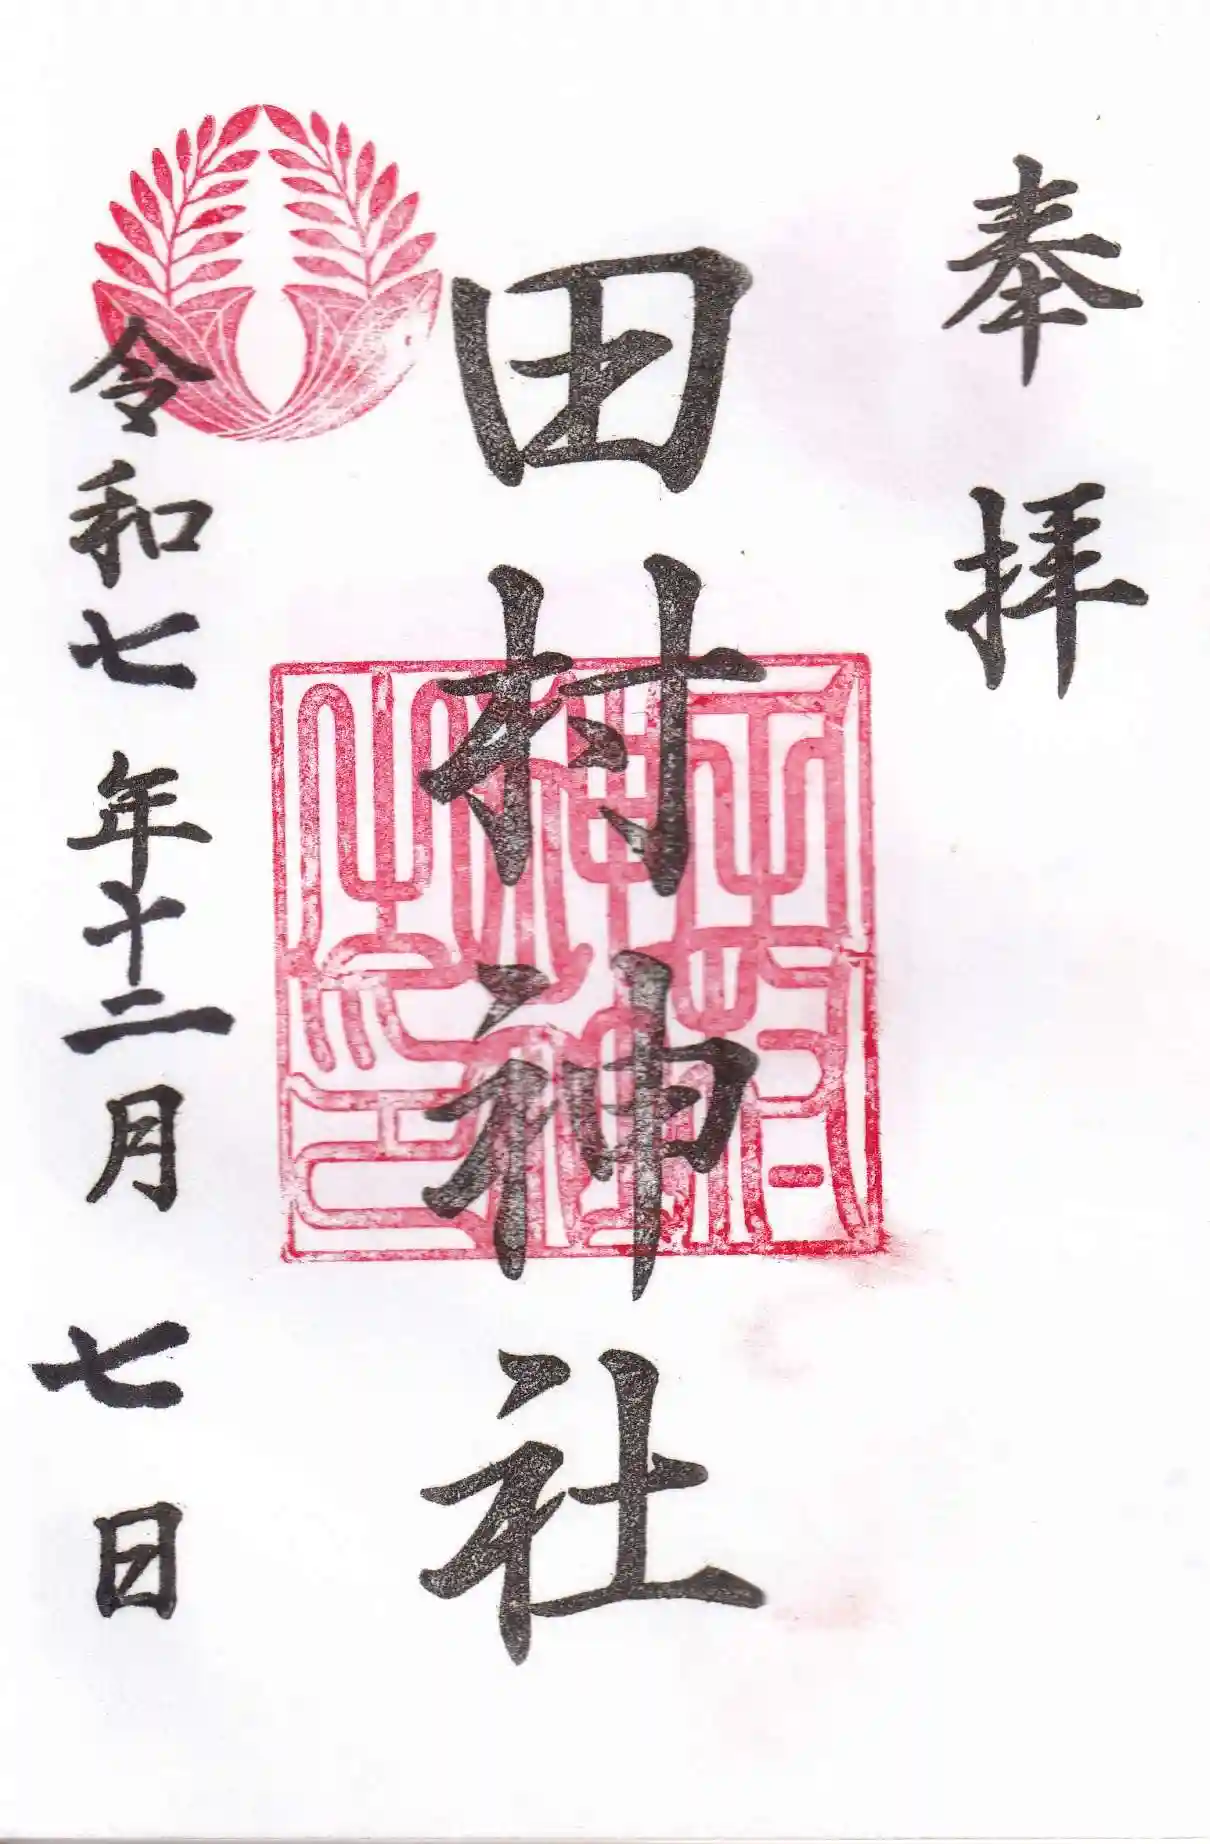 奉拝
田村神社
令和七年十二月七日